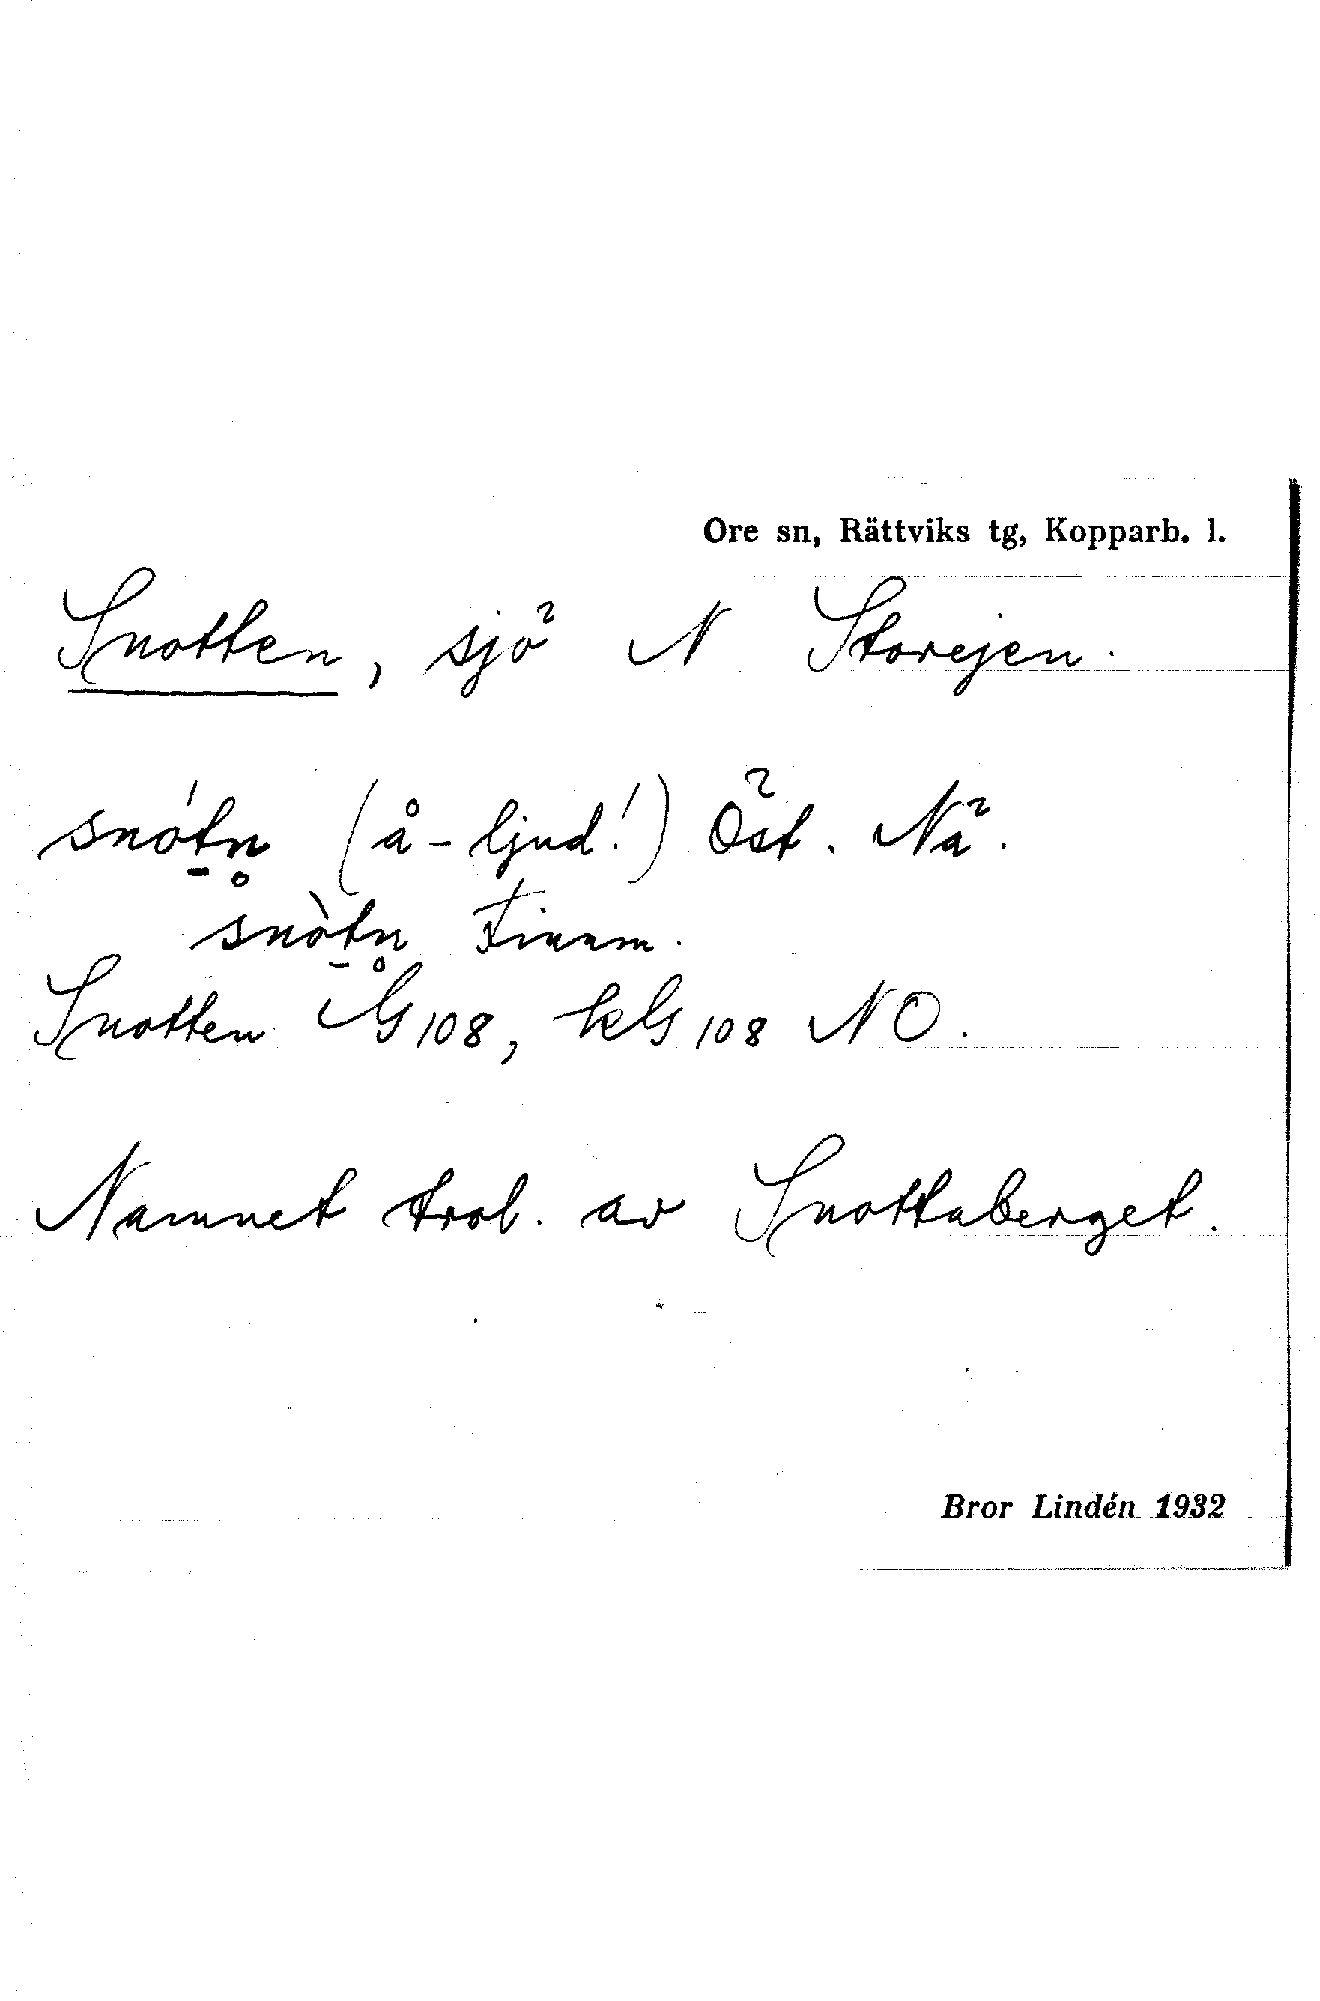 Ore sn, Rättviks tg, Kopparb. l.
Snotten, sjö N Storejen.
snót̠n̥ (å-ljud!) Öst. Nä.
snòt̠n̥ Finnm.
Snotten G 108, kG 108 NO.
Namnet trol. av Snottaberget.
Bror Lindén 1932